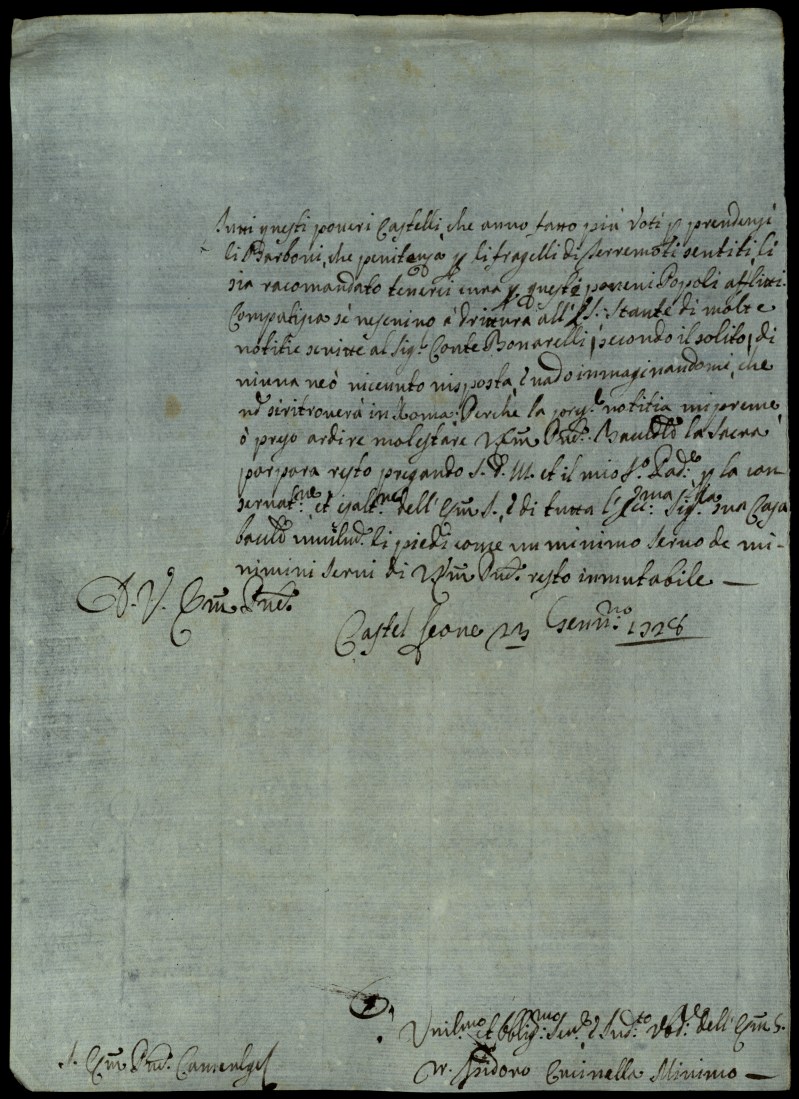 Tutti questi poveri Castelli, che anno fatto più Voti p prendersi
li Barboni, che penitenza, p li fragelli di Terremoti sentiti, li
sia racomandato tenerci cura p questi poveri Popoli afflitti.
Compatisca se ne scrivo à drittura all' S. Stante di molte
notitie scritte al Sigr. Conte Bonarelli, secondo il solito, di
niuna ne ò ricevuto risposta, e vado inmaginandomi, che
no si ritroverà in Roma: Perche la notitia mi preme
ò preso ardire molestare Vra Em. Baciado la Sacra
porpora resto pregando S. D. M. et il mio S. Pad. p la con
servat.ne et esalt.ne dell' Em S., e di tutta l' Ecc.ma sua Casa
baciado li piedi come un minimo servo de mi-
nimini Servi di resto inmutabile —
D. V. Em
Castel Leone 23 Genn.ro 1728
Umil.mo et obblig.mo Ser. e Sud.to dell' Em S.
S. Em
Isidoro Cucinella Minimo —